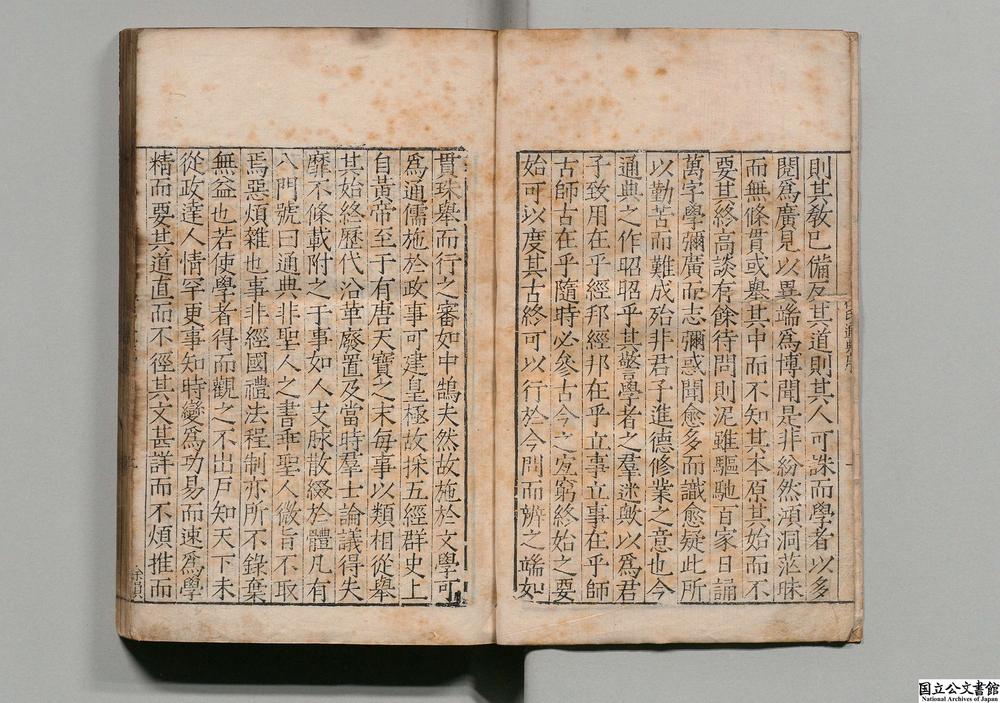 則其敎已備反其道則其人可誅而學者以多
閱爲廣見以異端爲博聞是非紛然澒洞茫昧
而無條貫或舉其中而不知其本原其始而不
要其終高談有餘待問則泥雖驅馳百家日誦
萬字學彌廣而志彌惑聞愈多而識愈疑此所
以勤苦而難成殆非君子進德修業之意也今
通典之作昭昭乎其警學者之羣迷歟以爲君
子致用在乎經邦經邦在乎立事立事在乎師
古師古在乎隨時必參古今之宐窮終始之要
始可以度其古終可以行於今問而辨之端如
貫珠舉而行之審如中鵠夫然故施於文學可
爲通儒施於政事可建皇極故採五經群史上
自黃帝至于有唐天寶之末每事以類相從舉
其始終歷代沿革廢置及當時羣士論議得失
靡不條載附之于事如人支脉散綴於體凡有
八門號曰通典非聖人之書乖聖人微旨不取
焉惡煩雜也事非經國禮法程制亦所不錄棄
無益也若使學者得而觀之不出戶知天下未
從政達人情罕更事知時變爲功易而速爲學
精而要其道直而不徑其文甚詳而不煩推而
余貞
国立公文書館
National Archives of Japan